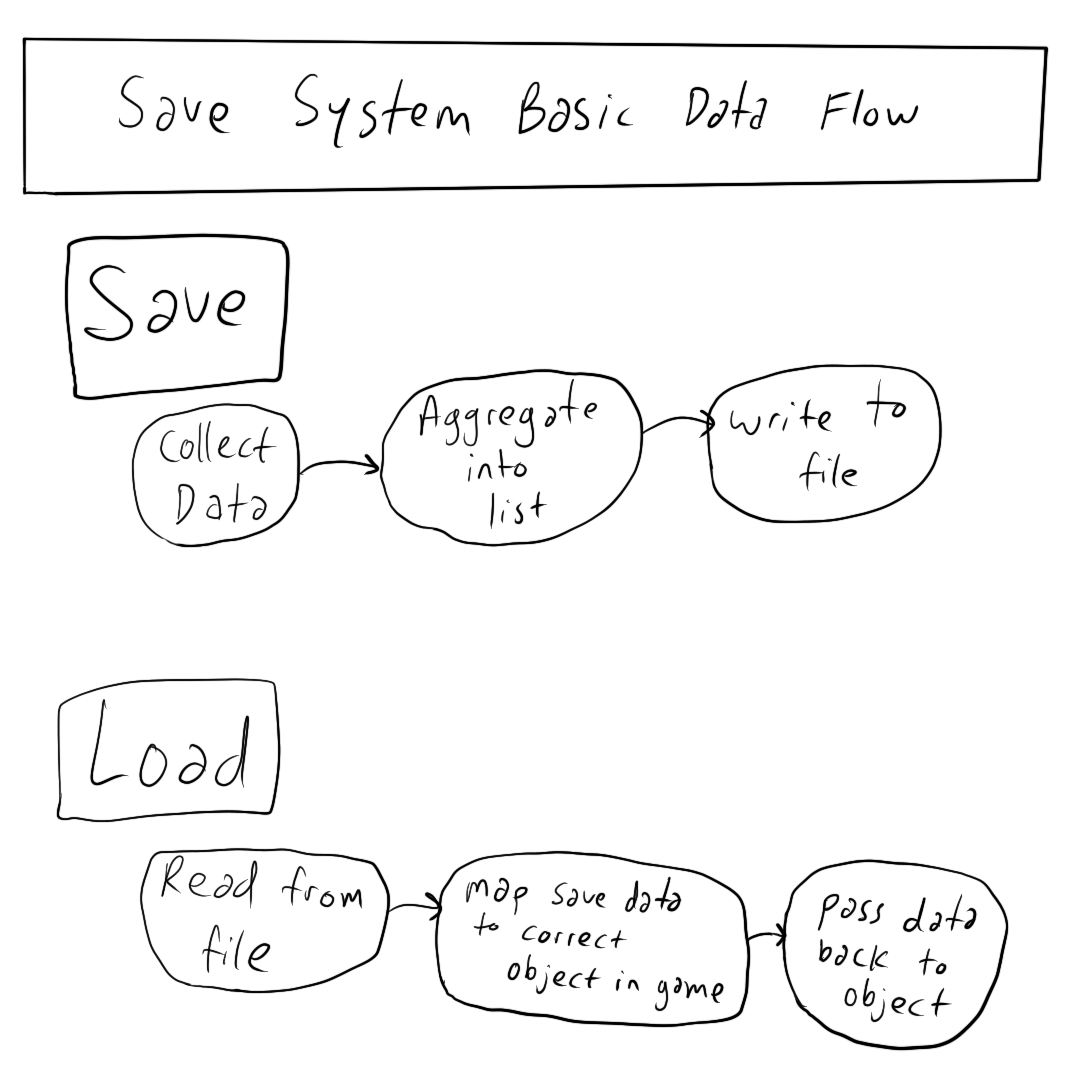 Save System Basic Data Flow
Save
Collect
Data
Aggregate
into
list
write to
file
Load
Read from
file
map save data
to correct
object in game
pass data
back to
object